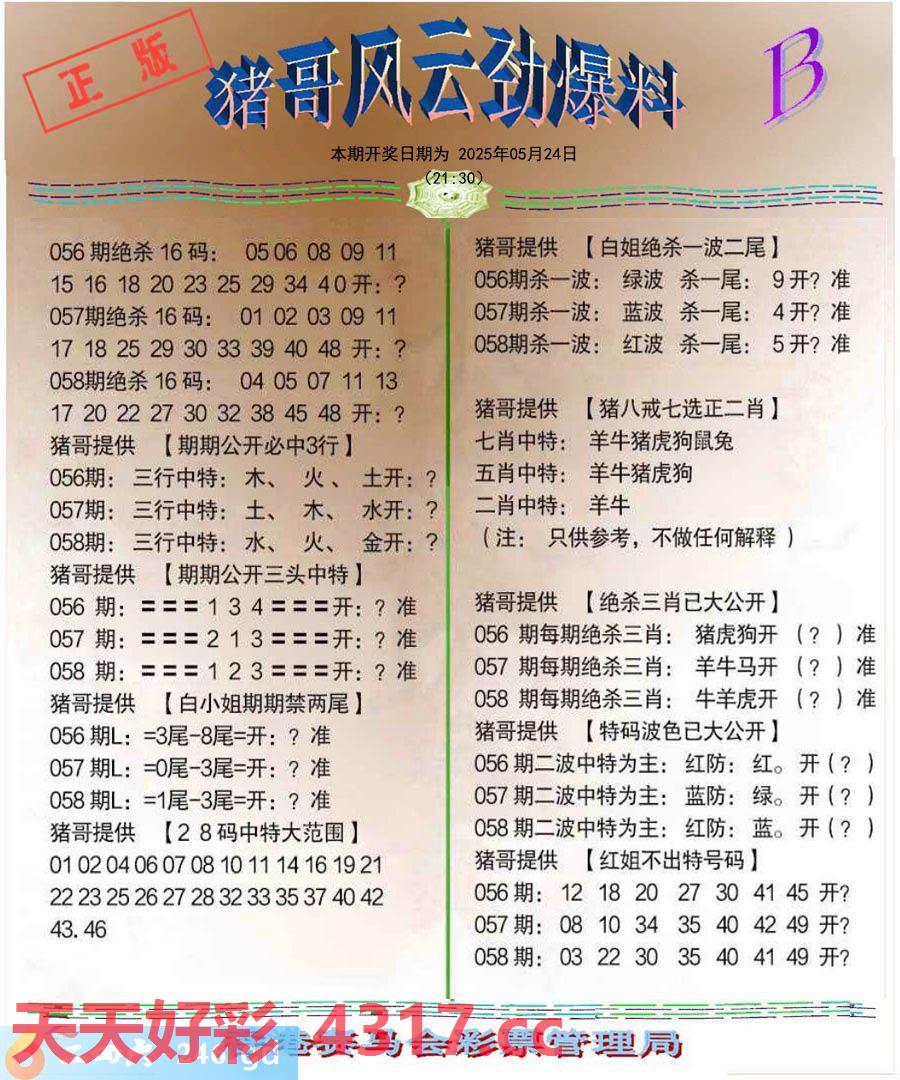 正版
猪哥风云劲爆料
B
本期开奖日期为 2025年05月24日
（21:30）
056期绝杀16码： 05 06 08 09 11
15 16 18 20 23 25 29 34 40开：？
057期绝杀16码： 01 02 03 09 11
17 18 25 29 30 33 39 40 48 开：？
058期绝杀16码： 04 05 07 11 13
17 20 22 27 30 32 38 45 48 开：？
猪哥提供 【期期公开必中3行】
056期：三行中特：木、 火、 土开：？
057期：三行中特：土、 木、 水开：？
058期：三行中特：水、 火、 金开：？
猪哥提供 【期期公开三头中特】
056 期：＝＝＝1 3 4＝＝＝开：？准
057 期：＝＝＝2 1 3＝＝＝开：？准
058 期：＝＝＝1 2 3＝＝＝开：？准
猪哥提供 【白小姐期期禁两尾】
056期L：=3尾-8尾=开：？准
057期L：=0尾-3尾=开：？准
058期L：=1尾-3尾=开：？准
猪哥提供 【28码中特大范围】
01 02 04 06 07 08 10 11 14 16 19 21
22 23 25 26 27 28 32 33 35 37 40 42
43. 46
猪哥提供 【白姐绝杀一波二尾】
056期杀一波： 绿波 杀一尾： 9开？准
057期杀一波： 蓝波 杀一尾： 4开？准
058期杀一波： 红波 杀一尾： 5开？准
猪哥提供 【猪八戒七选正二肖】
七肖中特： 羊牛猪虎狗鼠兔
五肖中特： 羊牛猪虎狗
二肖中特： 羊牛
（注： 只供参考，不做任何解释 ）
猪哥提供 【绝杀三肖已大公开】
056 期每期绝杀三肖： 猪虎狗开 （？ ）准
057 期每期绝杀三肖： 羊牛马开 （？ ）准
058 期每期绝杀三肖： 牛羊虎开 （？ ）准
猪哥提供 【特码波色已大公开】
056期二波中特为主：红防：红。开（？ ）
057期二波中特为主：蓝防：绿。开（？ ）
058期二波中特为主：红防：蓝。开（？ ）
猪哥提供 【红姐不出特号码】
056期： 12 18 20 27 30 41 45 开?
057期： 08 10 34 35 40 42 49 开?
058期： 03 22 30 35 40 41 49 开?
天天好彩 4317.cc
港赛马会彩票管理局